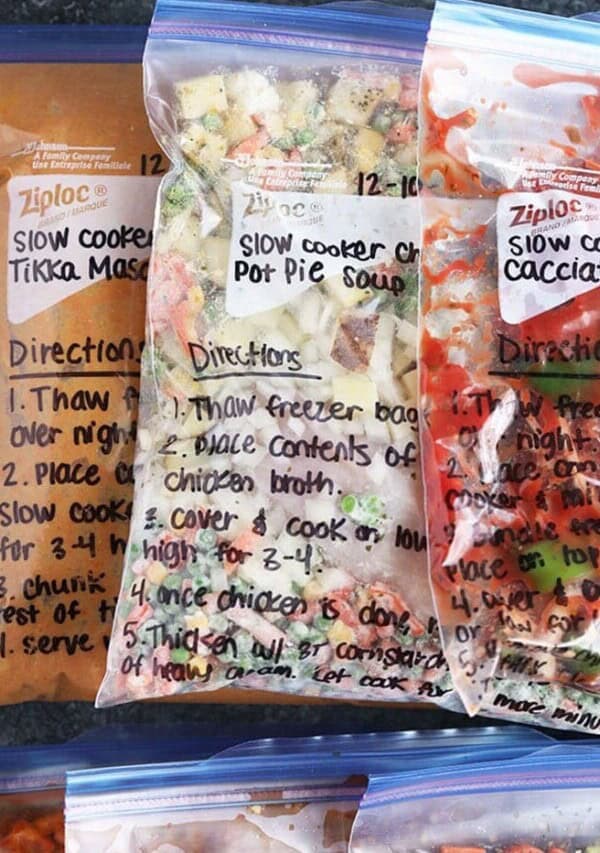 A Family Company
Use Entreprise Familiale
12
Ziploc®
BRAND/MARQUE
Slow cooke
Tikka Mas
Directions
1. Thaw
over nigh
2. Place
slow cook
for 3-4 h
3. chunk
rest of
serve
A Family Company
12-10
Ziploc®
Slow cooker ch
Pot Pie Soup
Directions
1. Thaw freezer bag
2. Place contents of
chicken broth.
3. cover & cook on low
high for 3-4.
4. once chicken is done,
5. Thicken w/ 3T cornstarch
of heavy cream. Let cook for
A Family Company
Use Entreprise Famil
Ziploc®
BRAND/MARQUE
Slow co
Caccia
Directio
1. Thaw free
night.
2. Place con
cooker
Place on top
4. cover &
or low for
5.
more minu